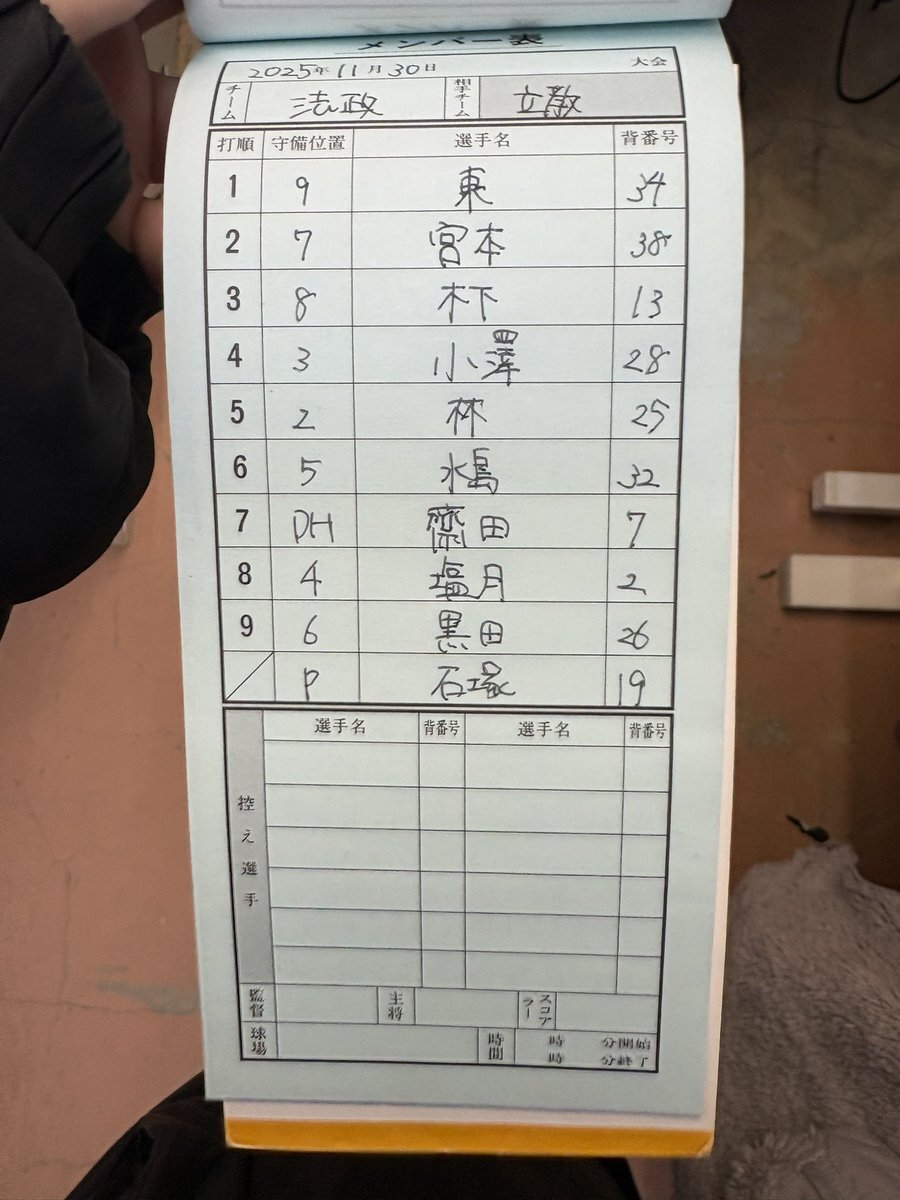 メンバー表
2025年 11月 30日 大会
チーム 法政 相手チーム 立教
打順 守備位置 選手名 背番号
1 9 東 34
2 7 宮本 38
3 8 木下 13
4 3 小澤 28
5 2 林 25
6 5 水島 32
7 DH 齋田 7
8 4 塩月 2
9 6 黒田 26
P 石塚 19
控え選手 選手名 背番号 選手名 背番号
監督 主将 スコアラー
球場 時間 時 分開始
時 分終了